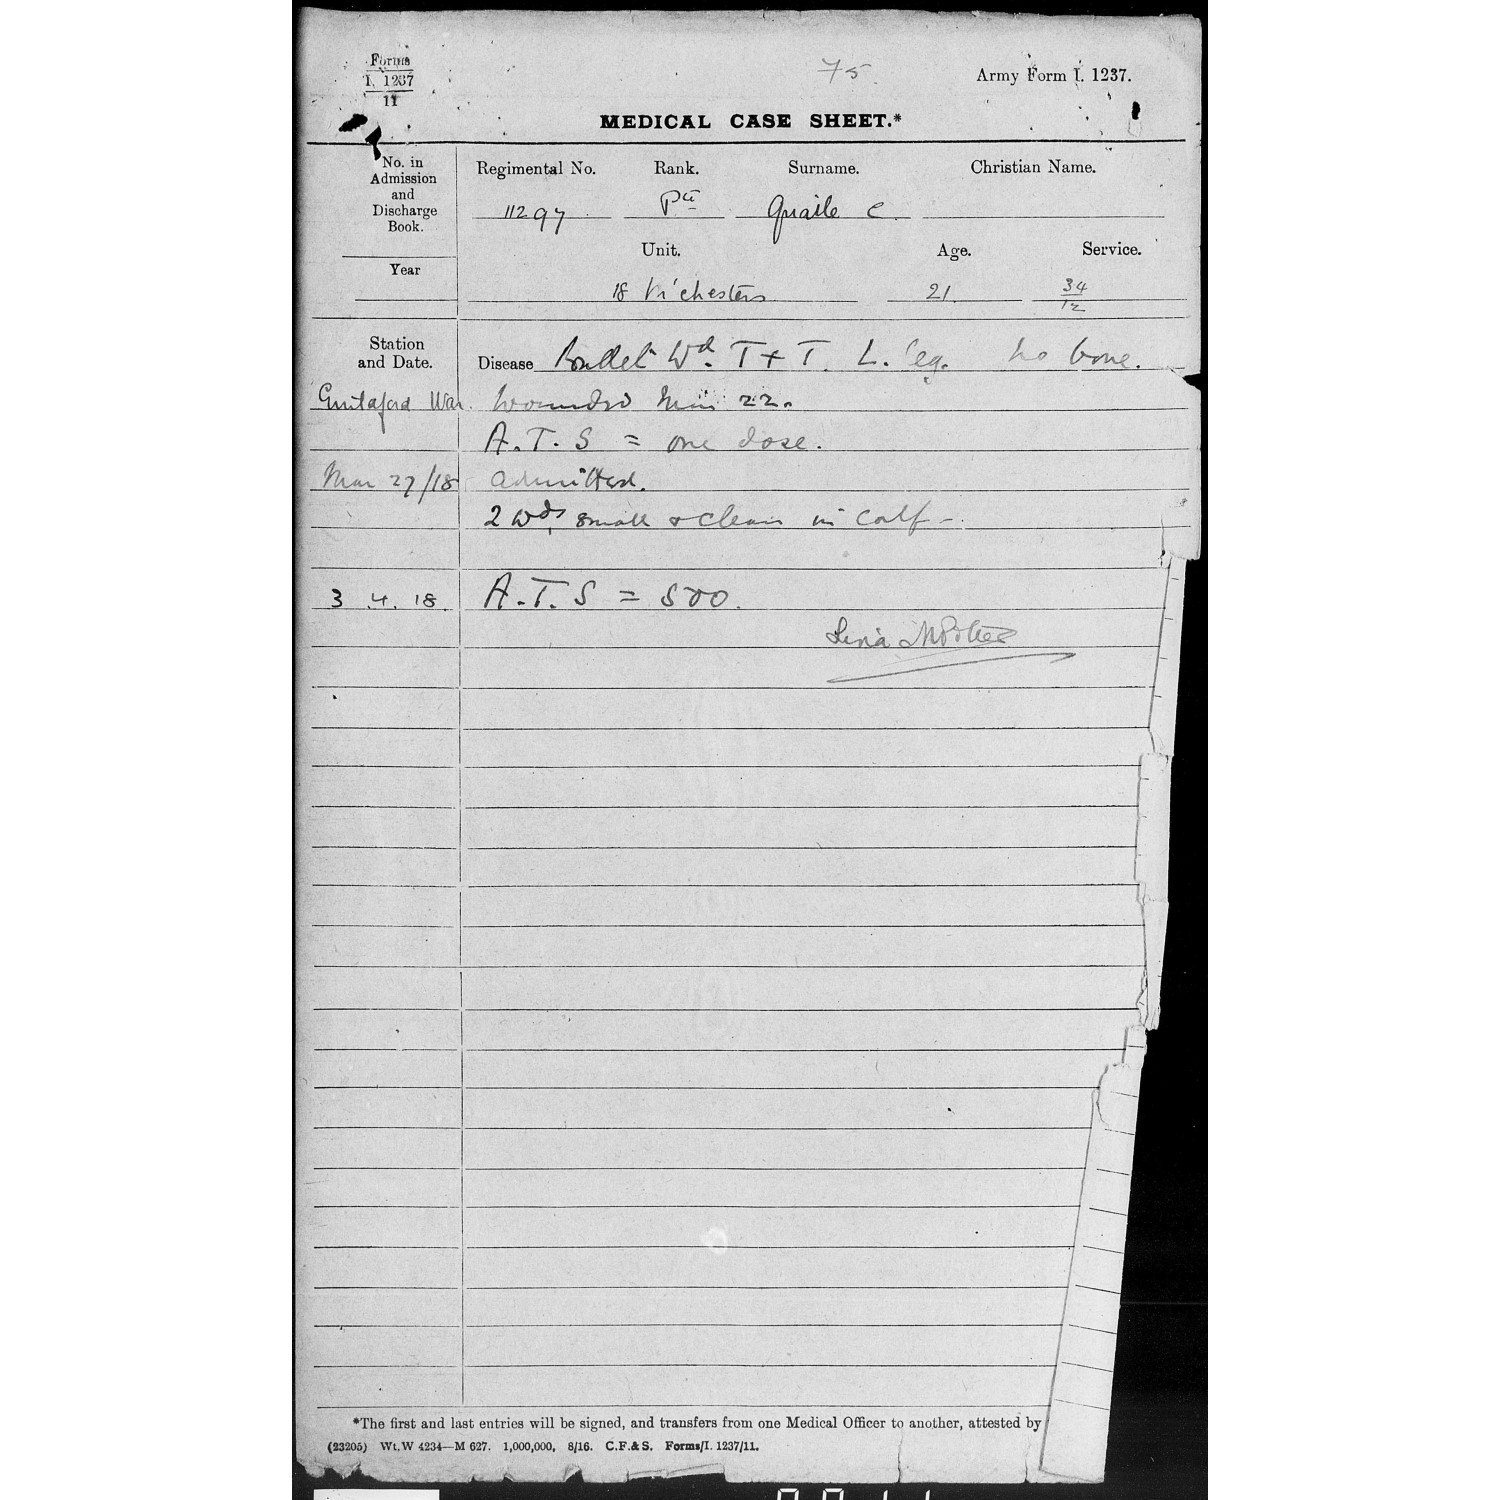 Forms
I. 1237
11
75
Army Form I. 1237.
MEDICAL CASE SHEET.*
No. in
Admission
and
Discharge
Book.
Year
Regimental No. Rank. Surname. Christian Name.
11297 Pte Quaile C.
Unit. Age. Service.
18 M'chesters 21. 34/12
Station
and Date.
Disease Bullet Wd. T + T. L. leg. no bone.
Guildford War. Wounded Mar 22.
A.T.S = one dose.
Mar 27/18 admitted.
2 wds small & clean in calf -
3 4. 18. A.T.S = 500.
*The first and last entries will be signed, and transfers from one Medical Officer to another, attested by
(23205) Wt.W 4234—M 627. 1,000,000, 8/16. C.F.& S. Forms/I. 1237/11.